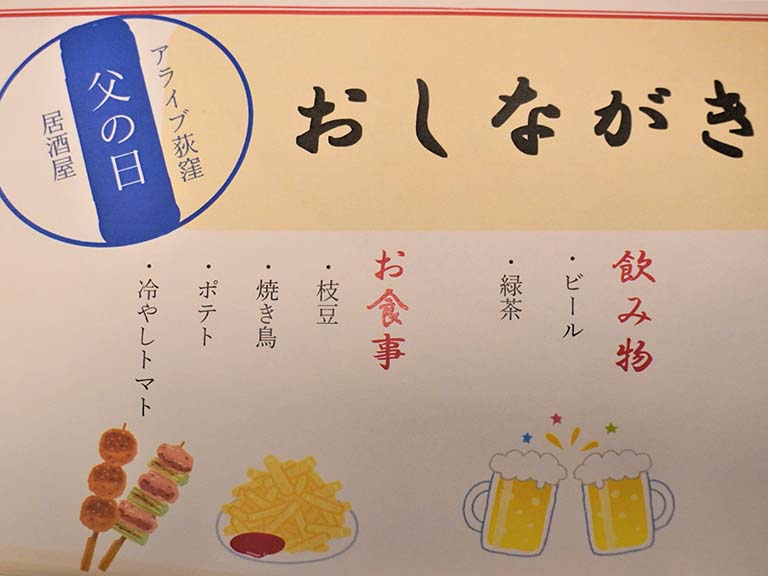 おしながき
アライブ荻窪
父の日
居酒屋
飲み物
・ビール
・緑茶
お食事
・枝豆
・焼き鳥
・ポテト
・冷やしトマト